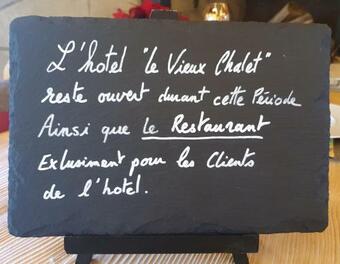 L'hotel "le Vieux Chalet"
reste ouvert durant cette Période
Ainsi que le Restaurant
Exlusiment pour les Clients
de l'hotel.